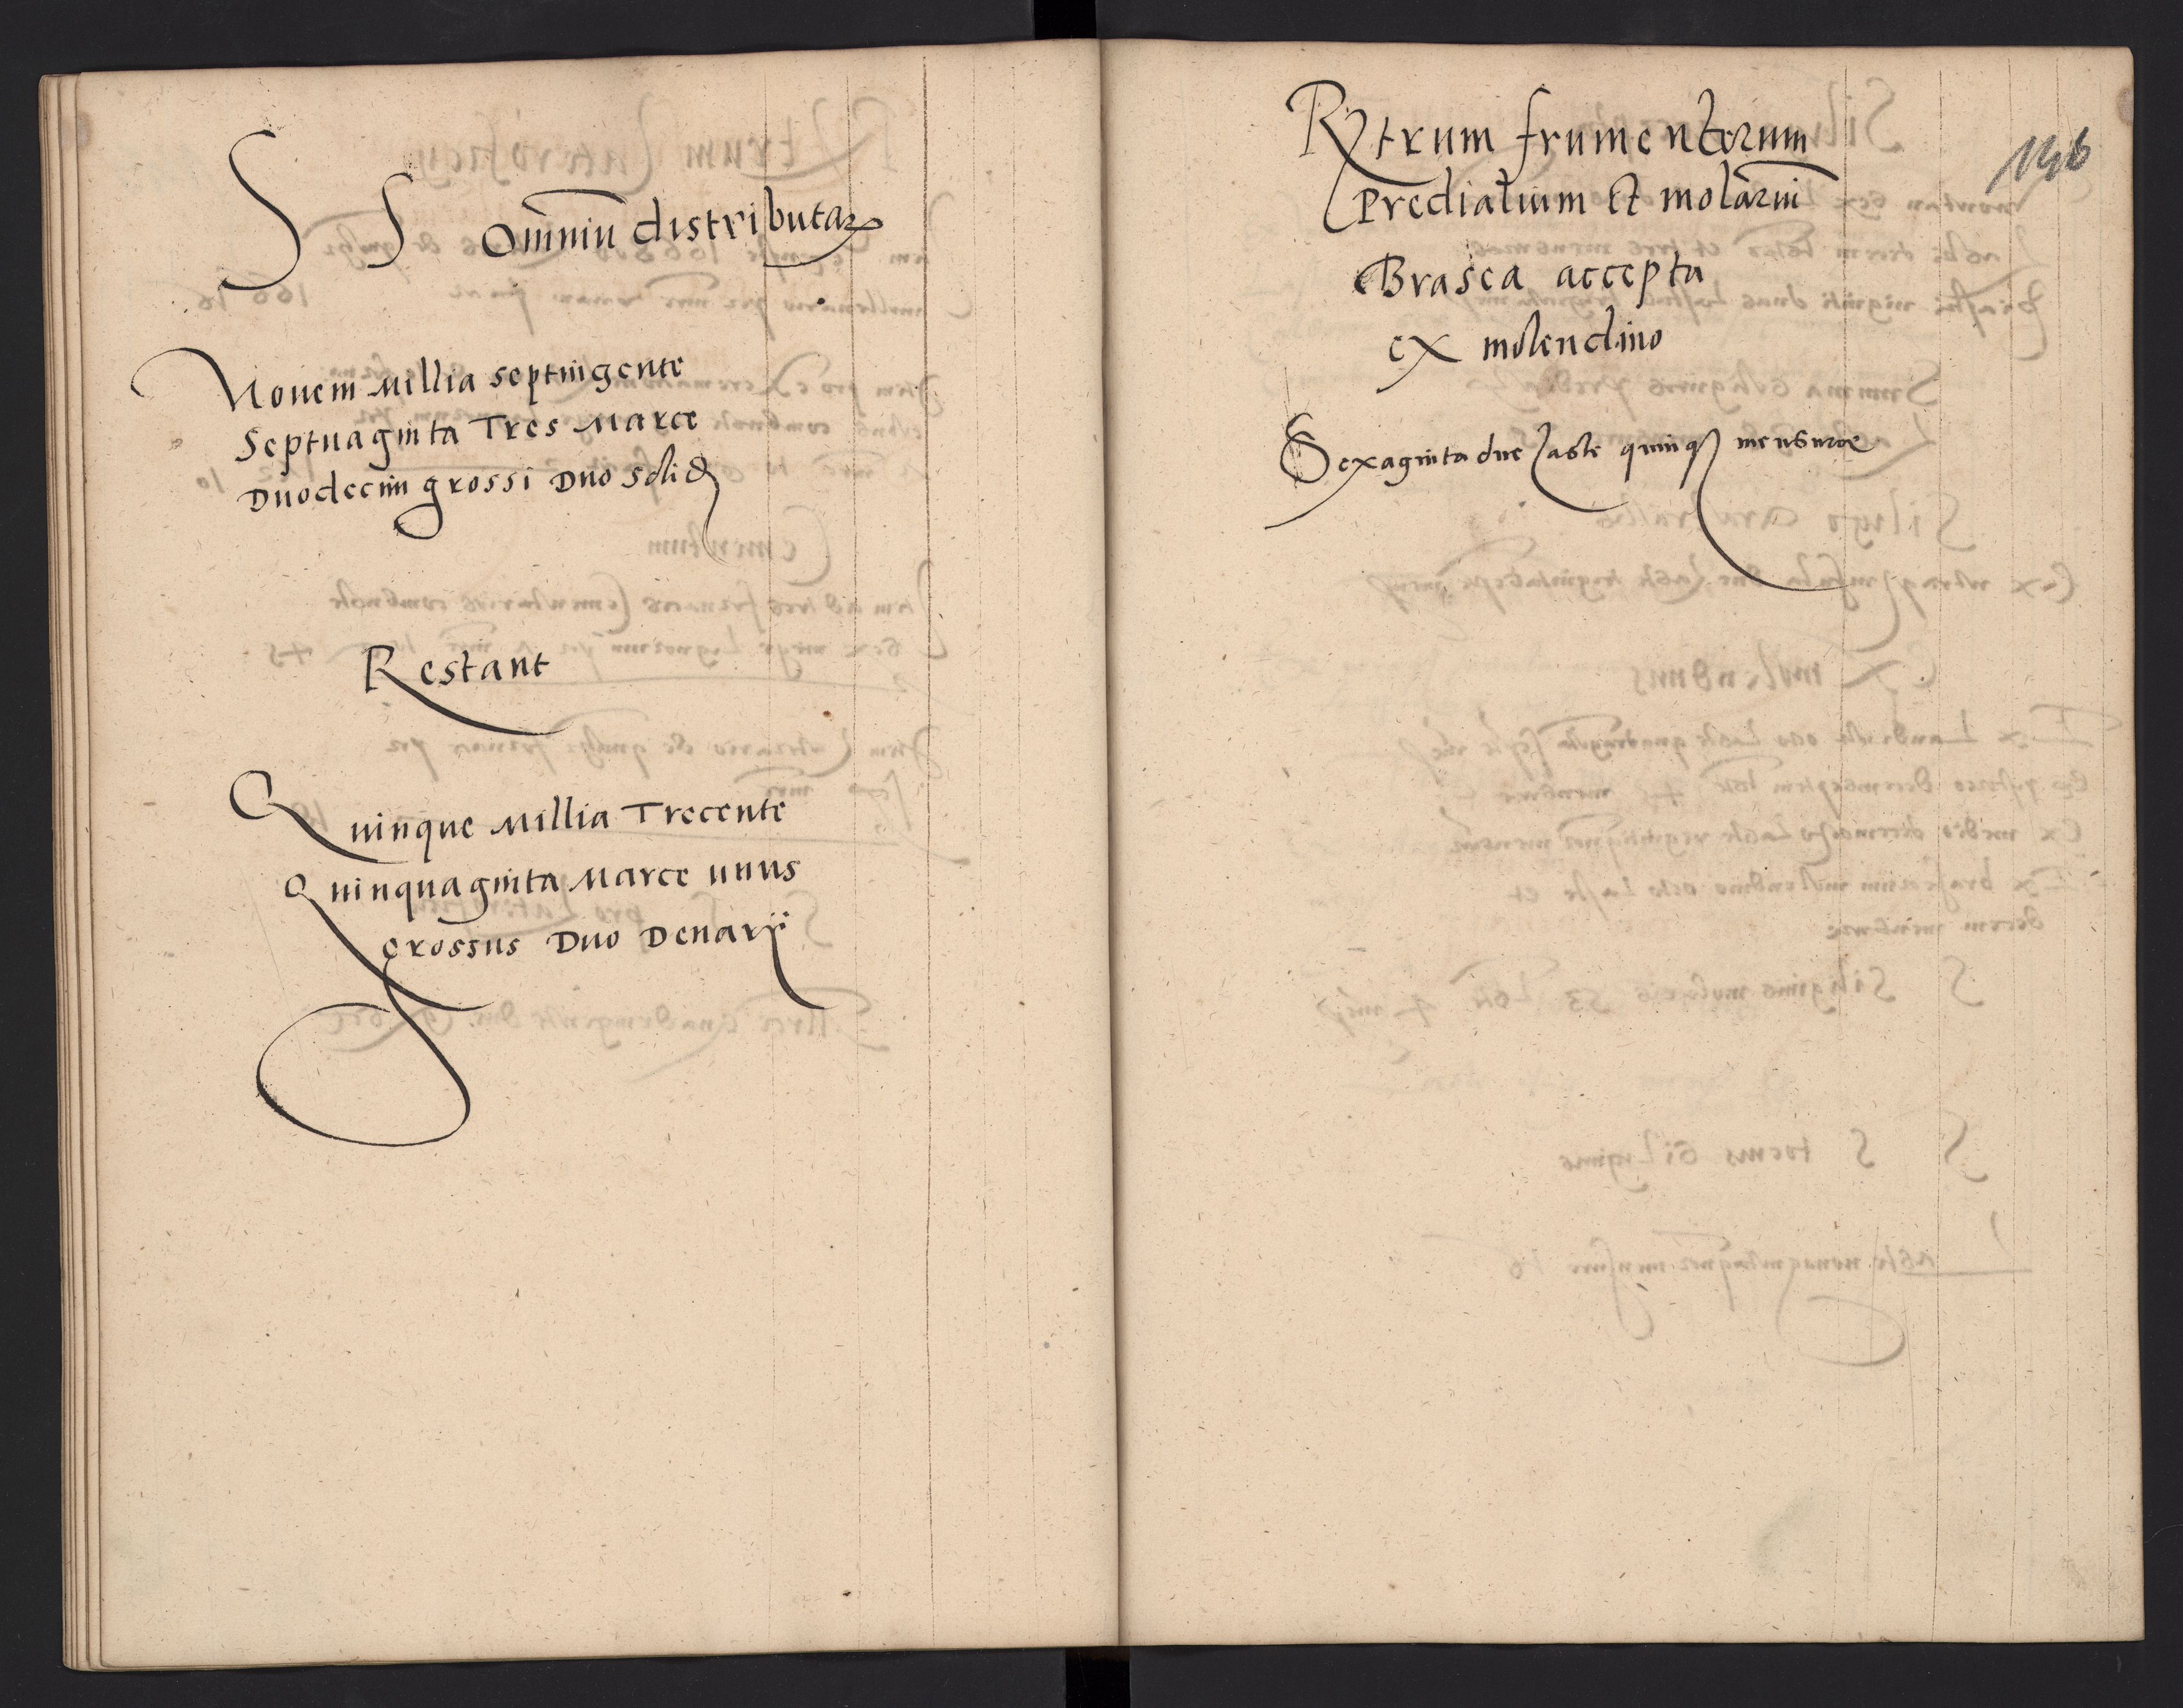 S S omniū distributaꝝ
Nouem Millia septingente
Septuaginta Tres Marce
Duodecim grossi Duo solid
Restant
Quinque Millia Trecente
Quinquaginta Marce unus
Grossus Duo Denarij
Rtrum frumentorum
Predialium Et molariū
Brasea accepta
ex molendino
Sexaginta due Laste quinqꝫ mensurae